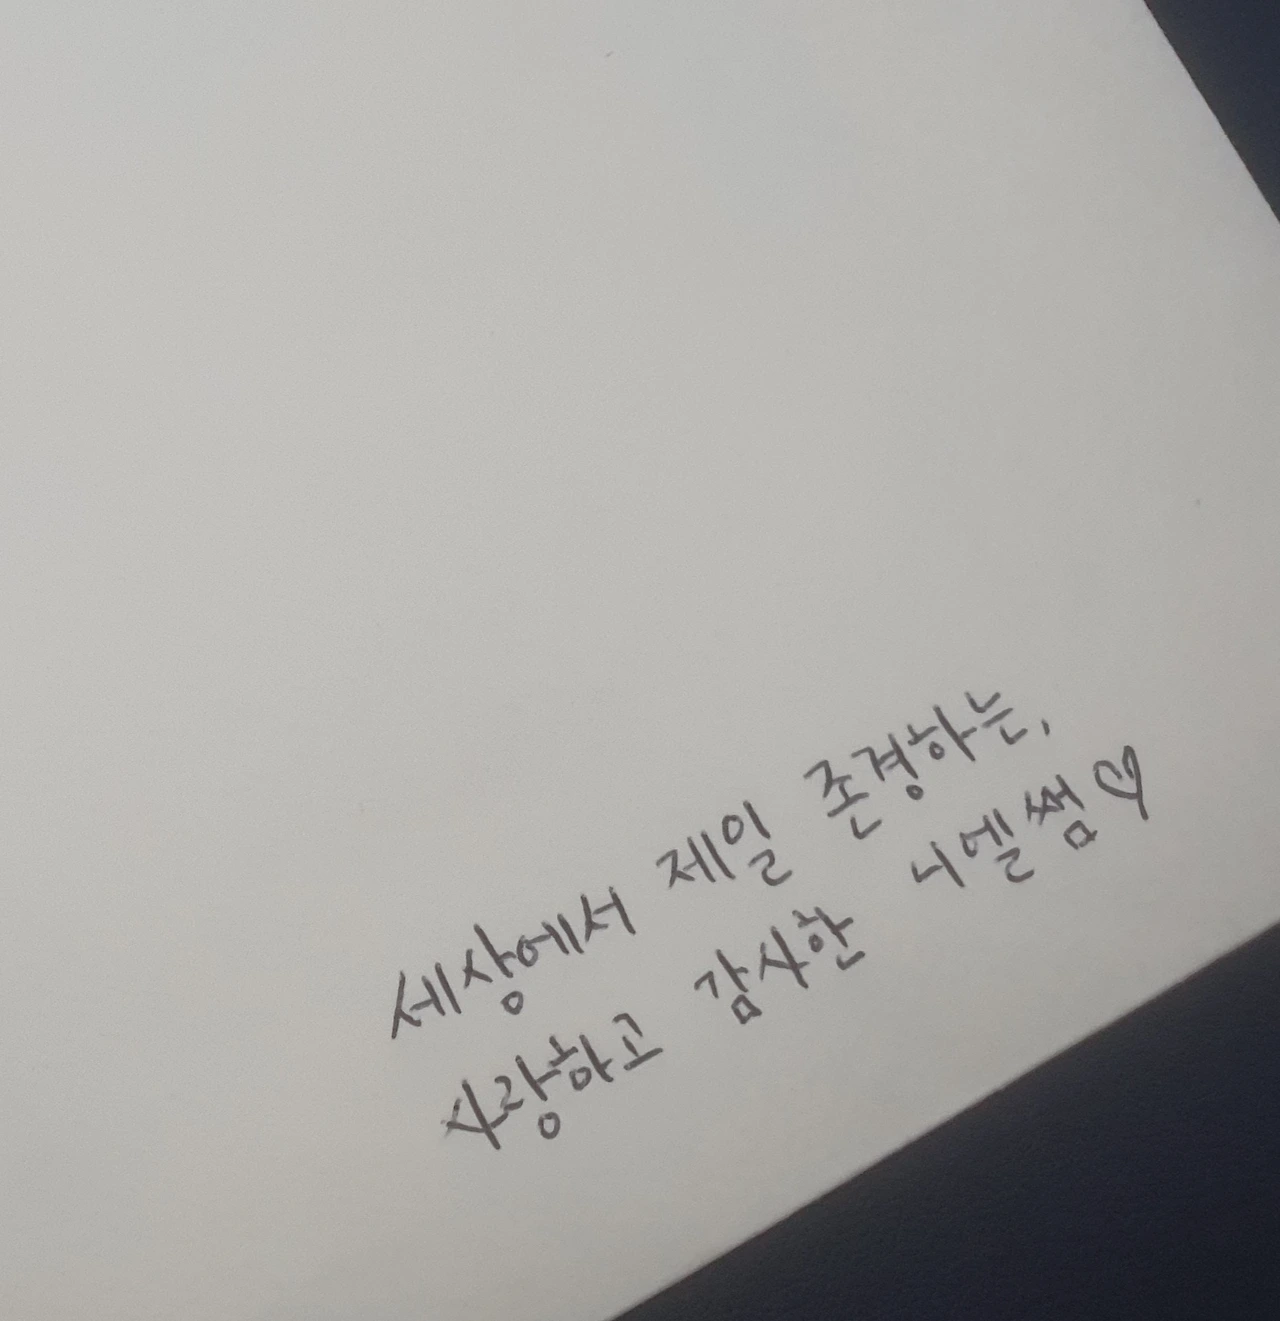 세상에서 제일 존경하는,
사랑하고 감사한 니엘쌤♡